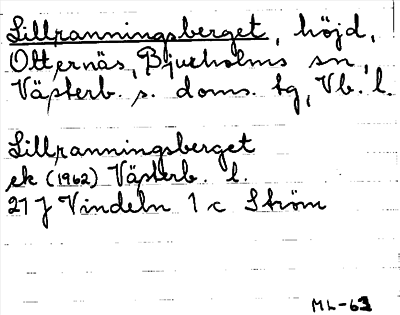 Lillranningsberget, höjd,
Otternäs, Bjurholms sn,
Västerb. s. doms. hg, Vb. l.
Lillranningsberget
ek (1962) Västerb. l.
21 J Vindeln 1 c Ström
ML-63